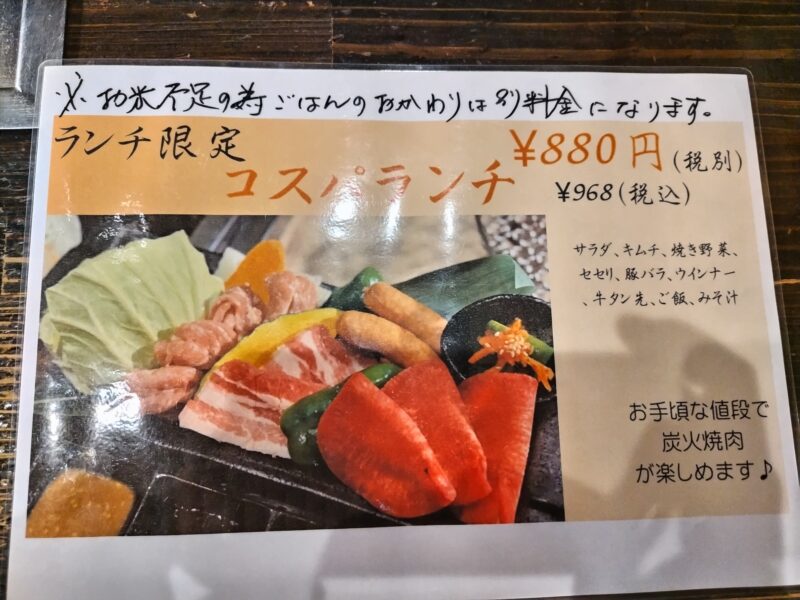 ※. お米不足の為ごはんのおかわりは別料金になります。
ランチ限定
¥880円(税別)
コスパランチ
¥968(税込)
サラダ、キムチ、焼き野菜、
セセリ、豚バラ、ウインナー
、牛タン先、ご飯、みそ汁
お手頃な値段で
炭火焼肉
が楽しめます♪